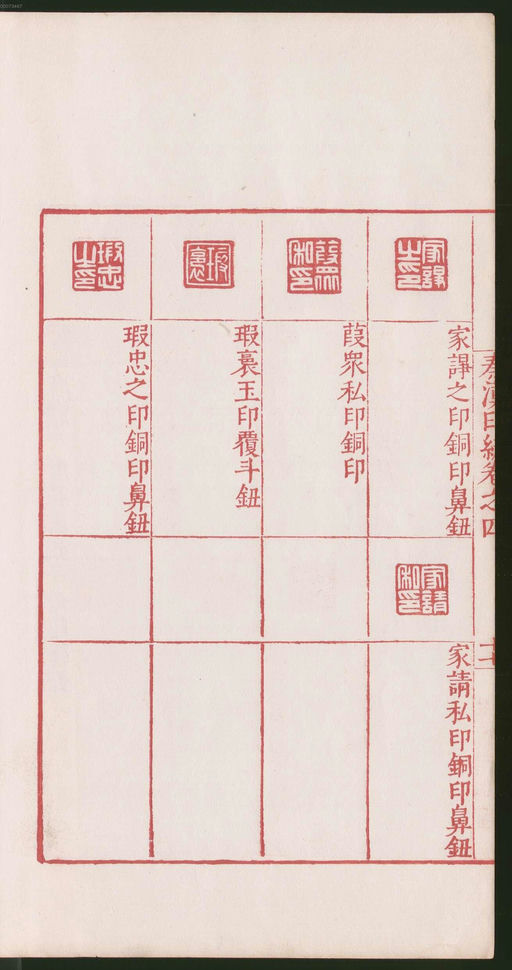 秦漢印統卷之四
家譁之印銅印鼻鈕
家請私印銅印鼻鈕
葭眾私印銅印
瑕裛玉印覆斗鈕
瑕忠之印銅印鼻鈕